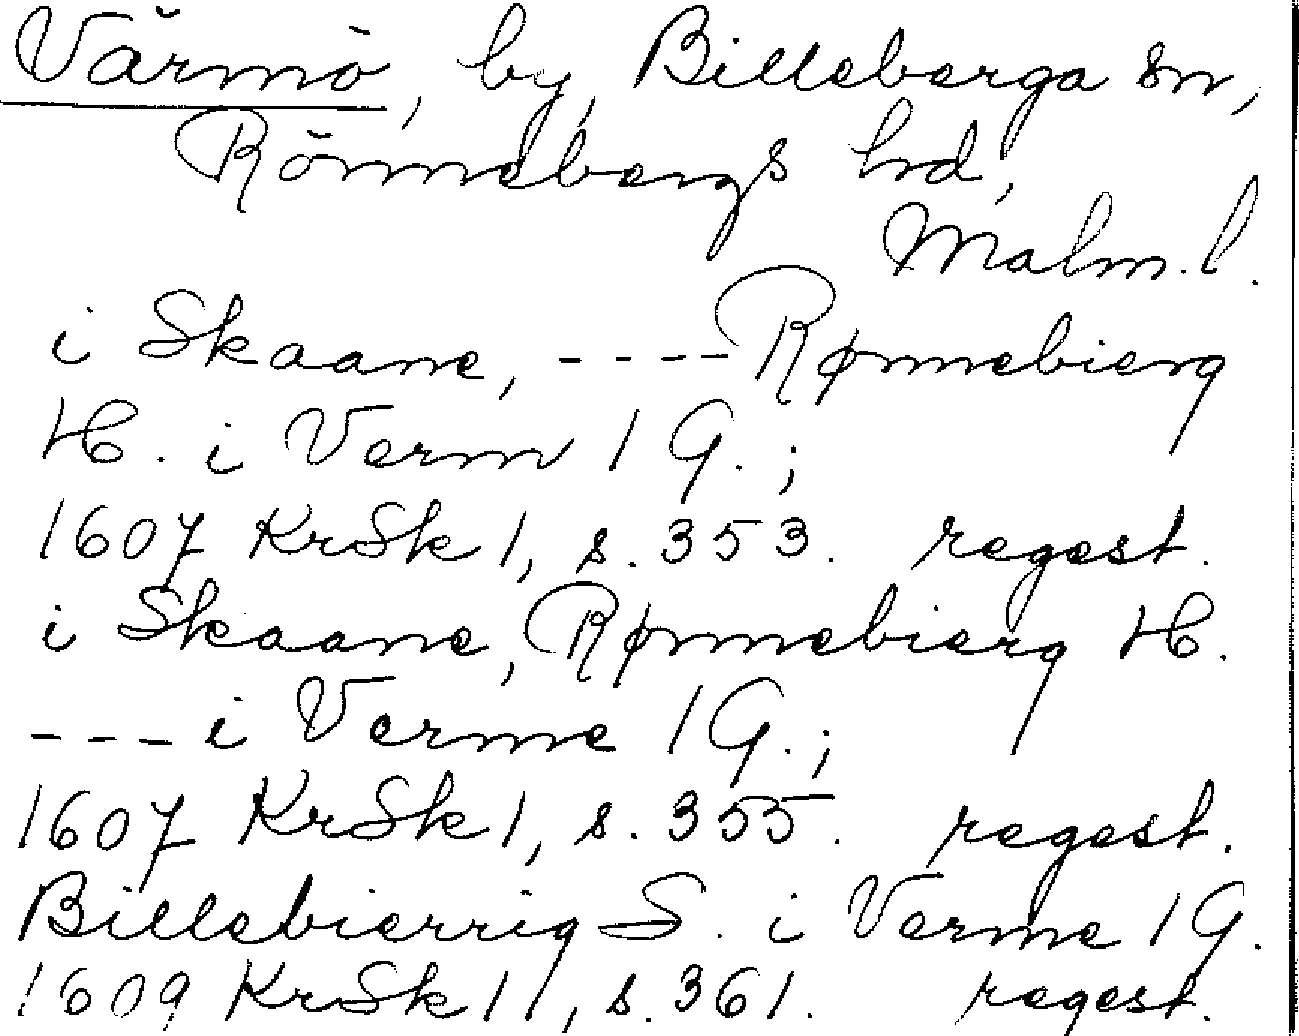 Värmö, by, Billeberga sn,
Rönnebergs hd,
Malm. l.
i Skaane, ---- Rønnebierg
H. i Verm 1 G.;
1607 KrSk 1, s. 353. regest.
i Skaane, Rønnebierg H.
--- i Verme 1 G.;
1607 KrSk 1, s. 355. regest.
Billebierrig S. i Verme 1 G.
1609 KrSk 11, s. 361. regest.